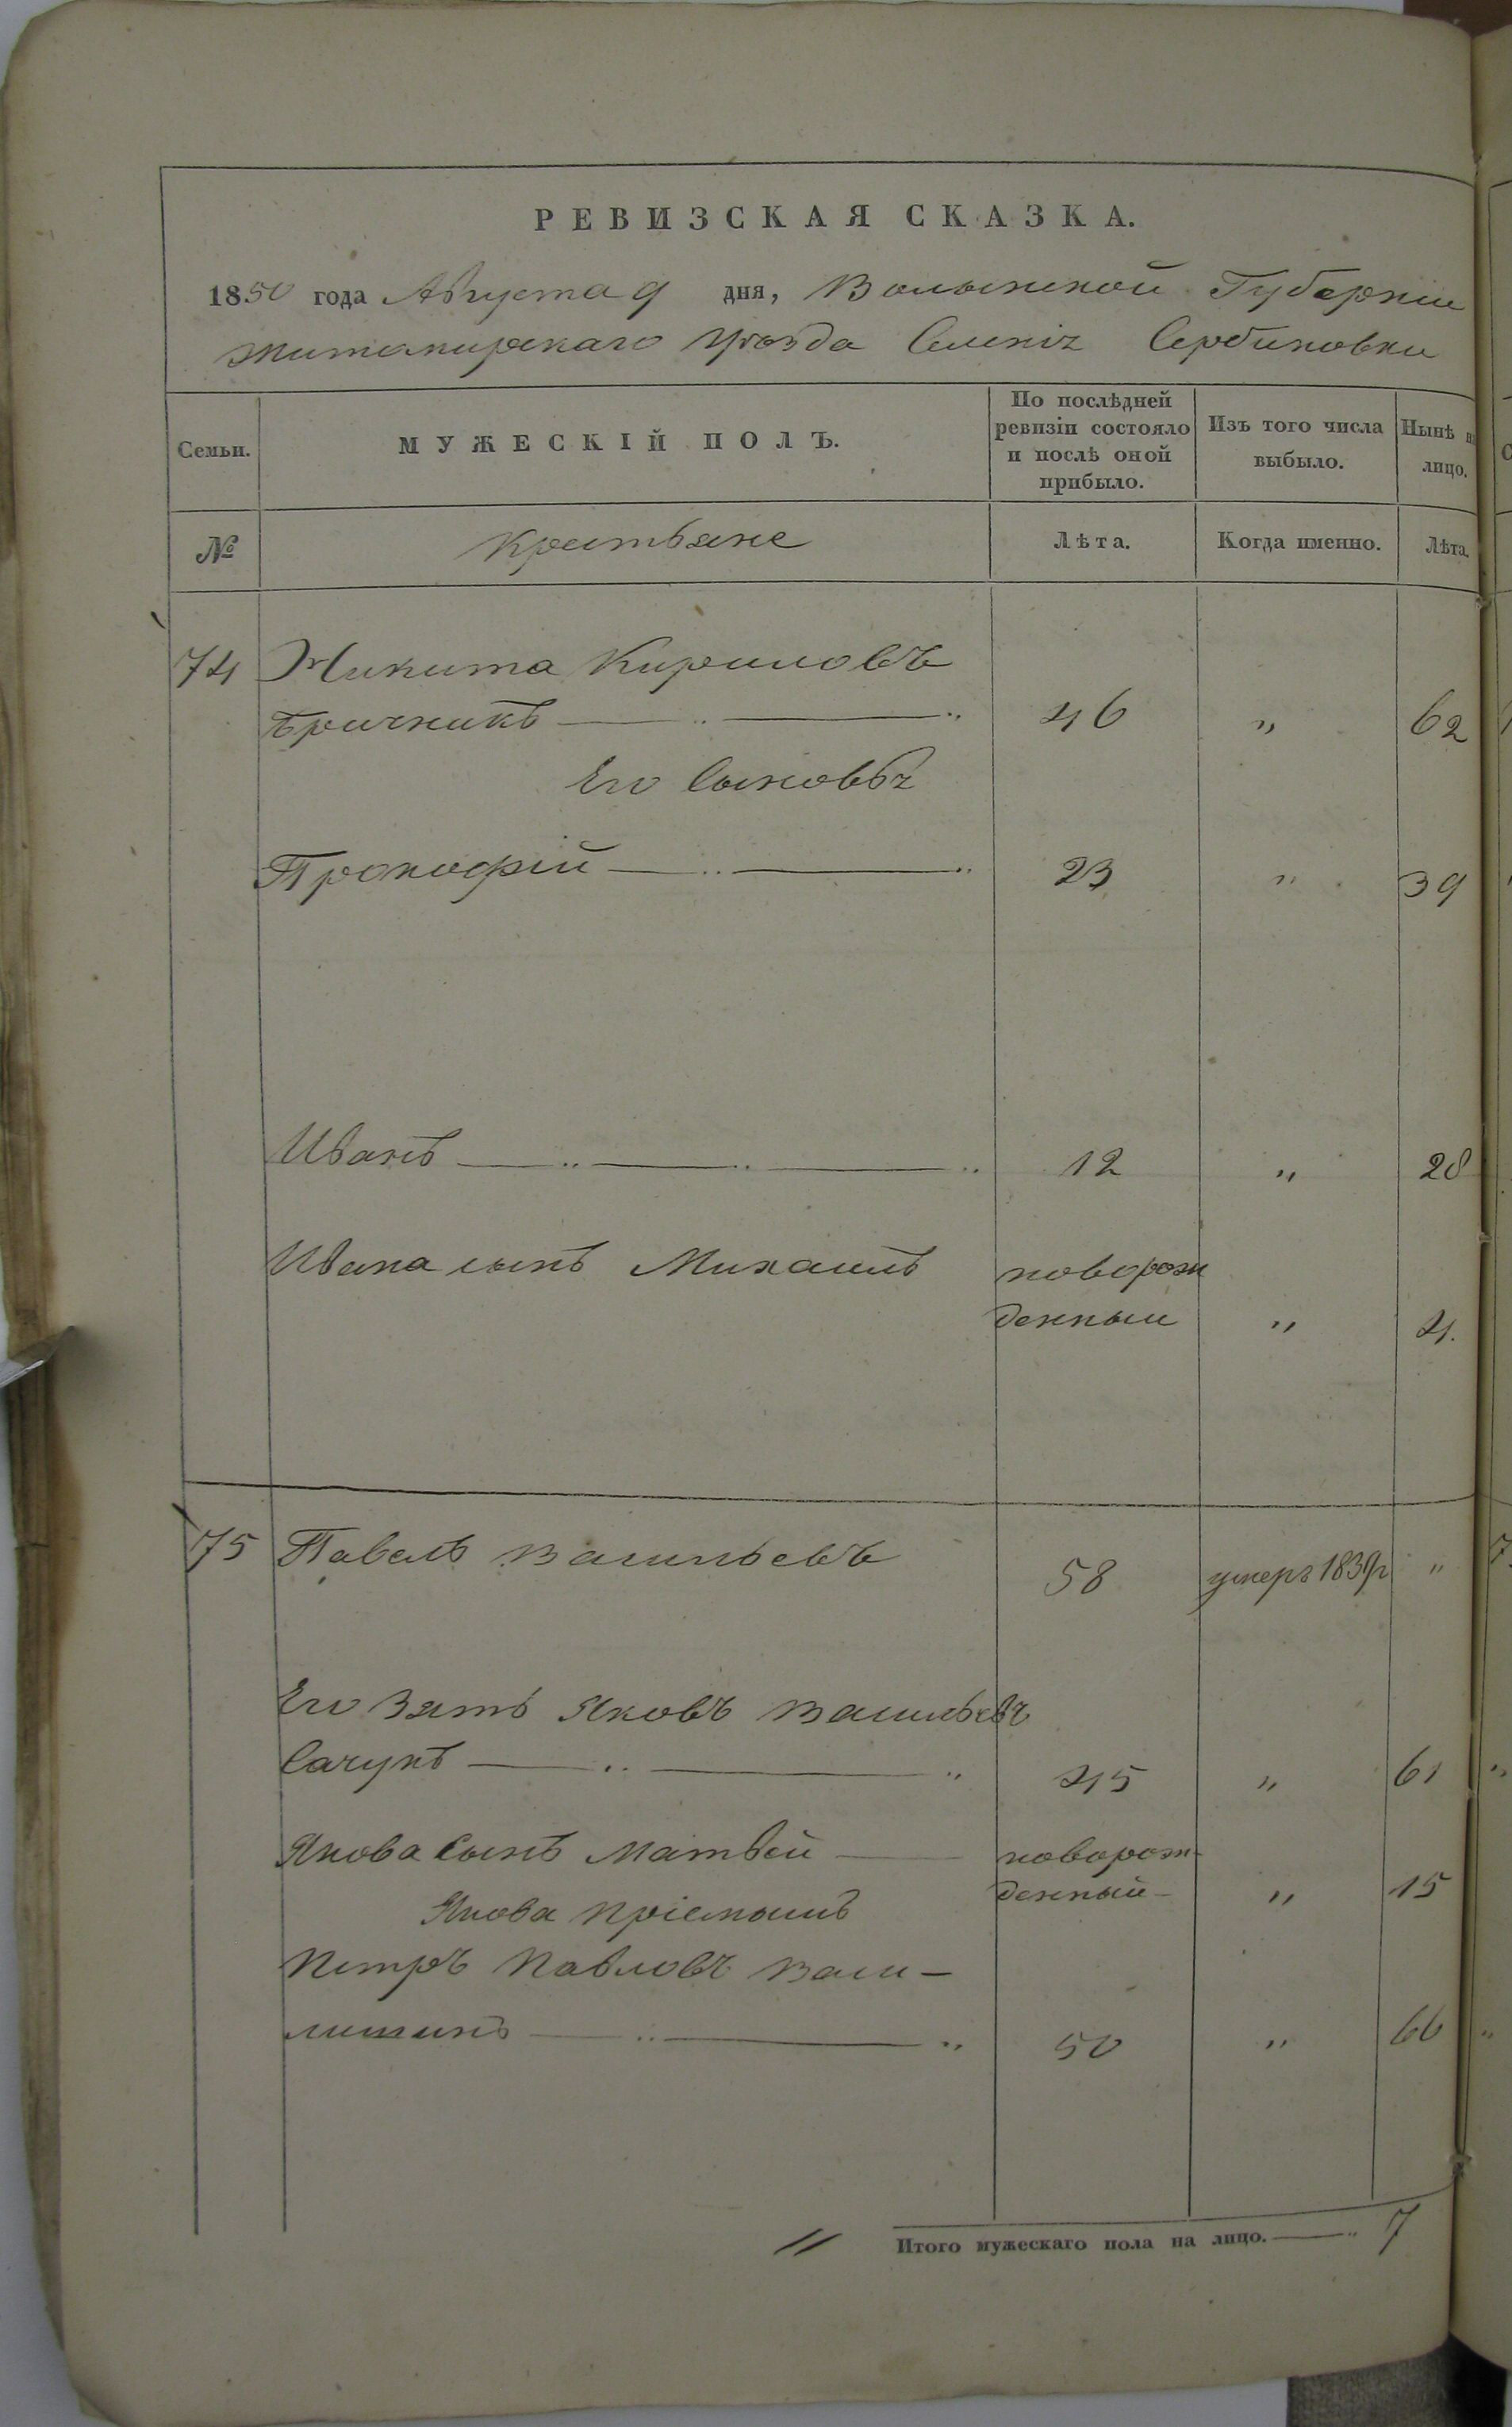 РЕВИЗСКАЯ СКАЗКА.
1850 года Августа 9 дня, Волынской Губернии
Житомирскаго Уѣзда Селенія Сербиновки
Семьи. МУЖЕСКІЙ ПОЛЪ. По послѣдней ревизіи состояло и послѣ оной прибыло. Изъ того числа выбыло. Нынѣ на лицо.
№ Крестьяне Лѣта. Когда именно. Лѣта.
74 Никита Кириловъ
Бричникъ 46 " 62
Его Сыновья
Прокофій 23 " 39
Иванъ 12 " 28
Ивана сынъ Михаилъ новорож
денный " 4.
75 Павелъ Васильевъ 58 умеръ 1839г "
Его Зять Яковъ Васильевъ
Сачукъ 45 " 61
Якова Сынъ Матвѣй новорож-
денный " 15
Якова пріемышъ
Петръ Павловъ Васи-
лишинъ 50 " 66
Итого мужескаго пола на лицо. 7